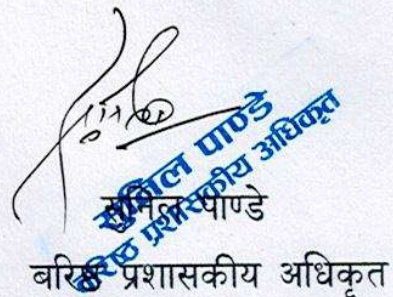 सुनिल पाण्डे
बरिष्ठ प्रशासकीय अधिकृत
सुनिल पाण्डे
बरिष्ठ प्रशासकीय अधिकृत